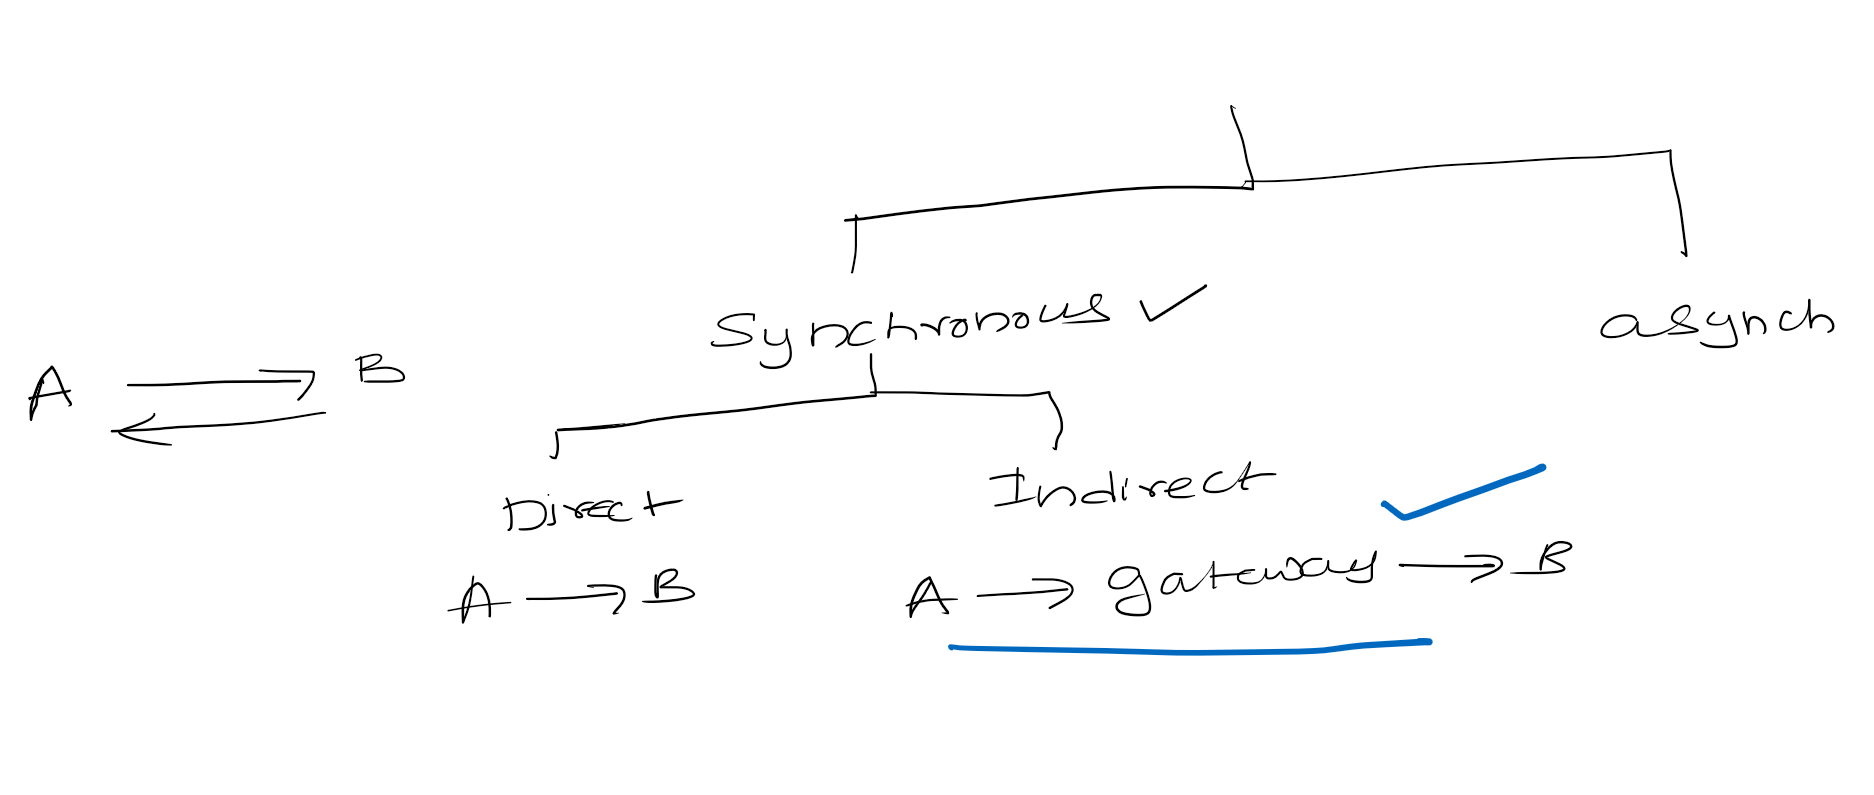 Synchronous ✓
asynch
A → B
←
Direct
Indirect ✓
A → B
A → gateway → B